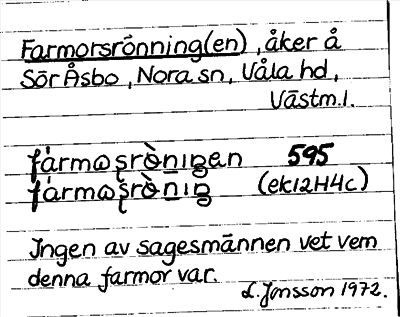 Farmorsrönning(en), åker å
Sör Åsbo, Nora sn, Våla hd,
Västm.l.
fàrmoʂrò̱nıŋen 595
fàrmoʂrò̱nıŋ (ek12H4c)
Ingen av sagesmännen vet vem
denna farmor var.
L. Jonsson 1972.